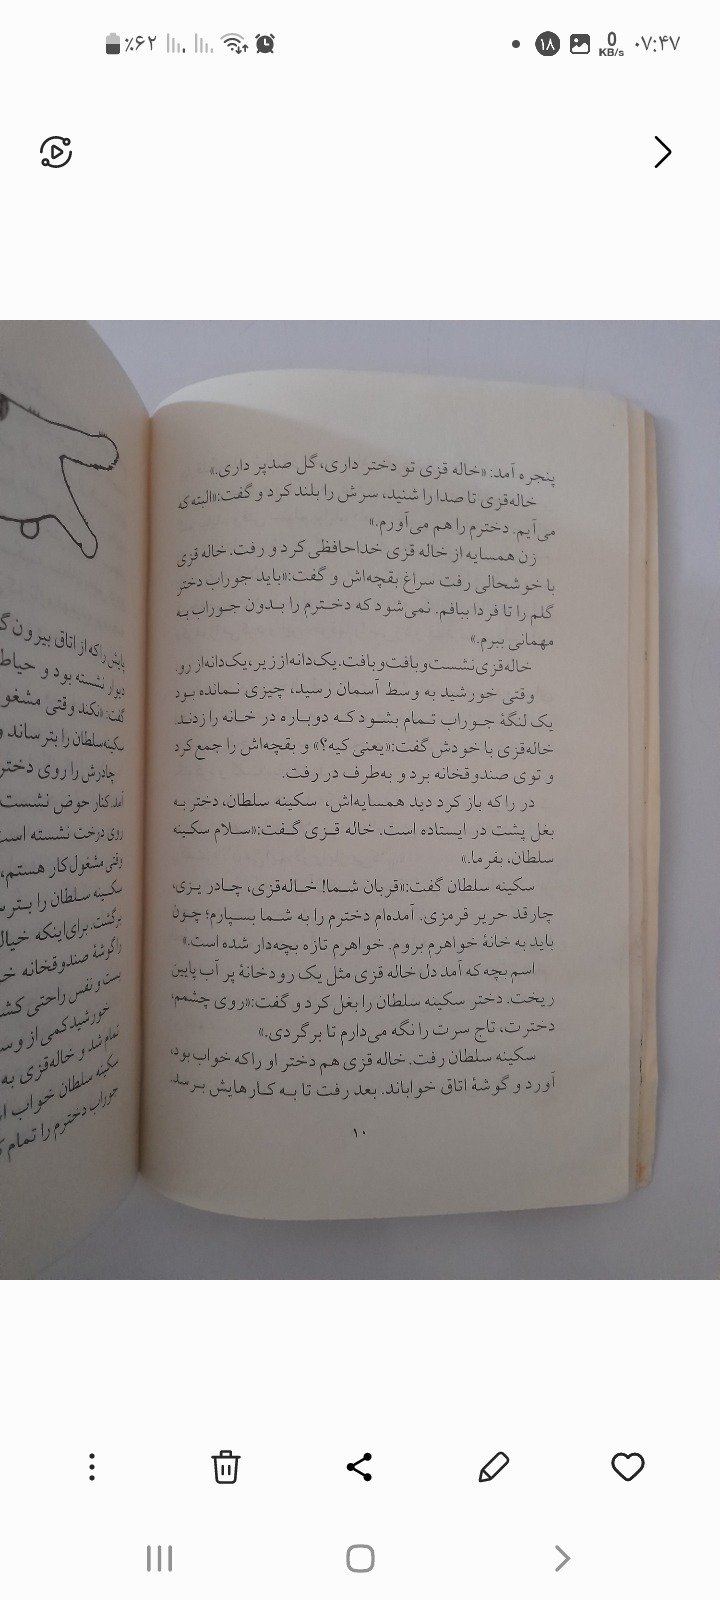 ۰۷:۴۷
0
KB/s
۱۸
٪۶۲
پنجره آمد: «خاله قزی تو دختر داری، گل صدپر داری.»
خاله‌قزی تا صدا را شنید، سرش را بلند کرد و گفت: «البته که
می‌آیم. دخترم را هم می‌آورم.»
زن همسایه از خاله قزی خداحافظی کرد و رفت. خاله قزی
با خوشحالی رفت سراغ بقچه‌اش و گفت: «باید جوراب دختر
گلم را تا فردا ببافم. نمی‌شود که دخترم را بدون جوراب به
مهمانی ببرم.»
خاله‌قزی نشست و بافت و بافت. یک دانه از زیر، یک دانه از رو.
وقتی خورشید به وسط آسمان رسید، چیزی نمانده بود
یک لنگهٔ جوراب تمام بشود که دوباره در خانه را زدند.
خاله‌قزی با خودش گفت: «یعنی کیه؟» و بقچه‌اش را جمع کرد
و توی صندوقخانه برد و به‌طرف در رفت.
در را که باز کرد دید همسایه‌اش، سکینه سلطان، دختر به
بغل پشت در ایستاده است. خاله قزی گفت: «سلام سکینه
سلطان، بفرما.»
سکینه سلطان گفت: «قربان شما! خاله‌قزی، چادر یزی،
چارقد حریر قرمزی. آمده‌ام دخترم را به شما بسپارم؛ چون
باید به خانهٔ خواهرم بروم. خواهرم تازه بچه‌دار شده است.»
اسم بچه که آمد دل خاله قزی مثل یک رودخانهٔ پر آب پایین
ریخت. دختر سکینه سلطان را بغل کرد و گفت: «روی چشمم،
دخترت، تاج سرت را نگه می‌دارم تا برگردی.»
سکینه سلطان رفت. خاله قزی هم دختر او را که خواب بود،
آورد و گوشهٔ اتاق خواباند. بعد رفت تا به کارهایش برسد.
۱۰
پایش را که از اتاق بیرون
دیوار نشسته بود و حیاط
گفت: «نکند وقتی مشغو
سکینه‌سلطان را بترساند و
چادرش را روی دختر
آمد کنار حوض نشست
روی درخت نشسته است
وقتی مشغول کار هستم،
سکینه سلطان را بتر
برگشت. برای اینکه خیال
را گوشهٔ صندوقخانه
بست و نفس راحتی کش
خورشید کمی از وس
تمام شد و خاله‌قزی به
سکینه سلطان خواب
جوراب دخترم را تمام